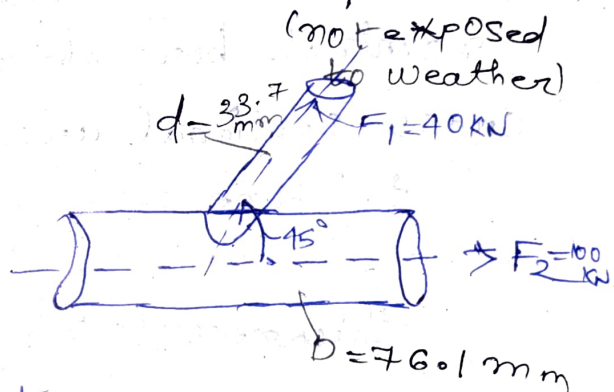 (not exposed
to weather)
d = 33.7
mm
F₁ = 40 KN
45°
→ F₂ = 100
KN
D = 76.1 mm